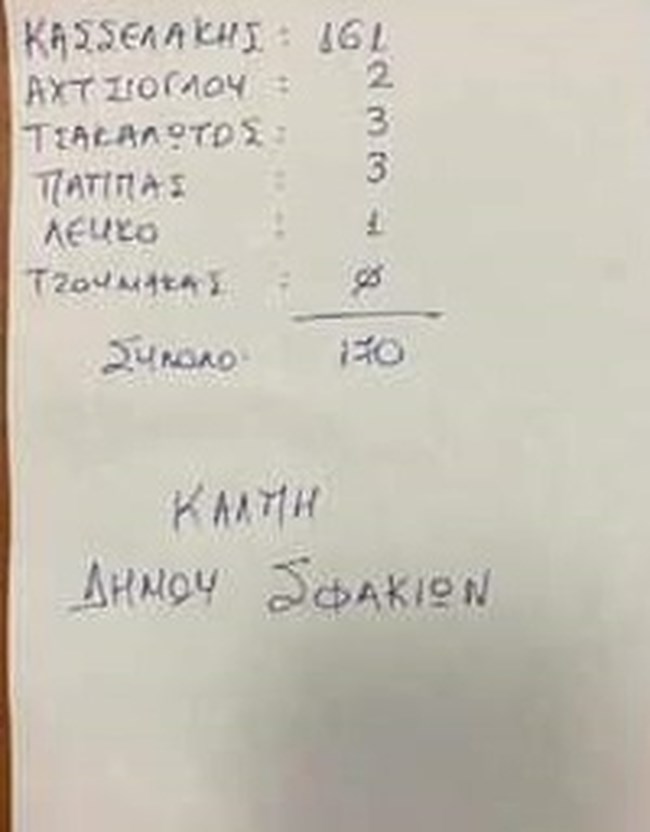 ΚΑΣΣΕΛΑΚΗΣ : 161
ΑΧΤΣΙΟΓΛΟΥ : 2
ΤΣΑΚΑΛΩΤΟΣ : 3
ΠΑΠΠΑΣ : 3
ΛΕΥΚΟ : 1
ΤΖΟΥΜΑΚΑΣ : 0
Σύνολο 170
ΚΑΛΠΗ
ΔΗΜΟΥ ΣΦΑΚΙΩΝ